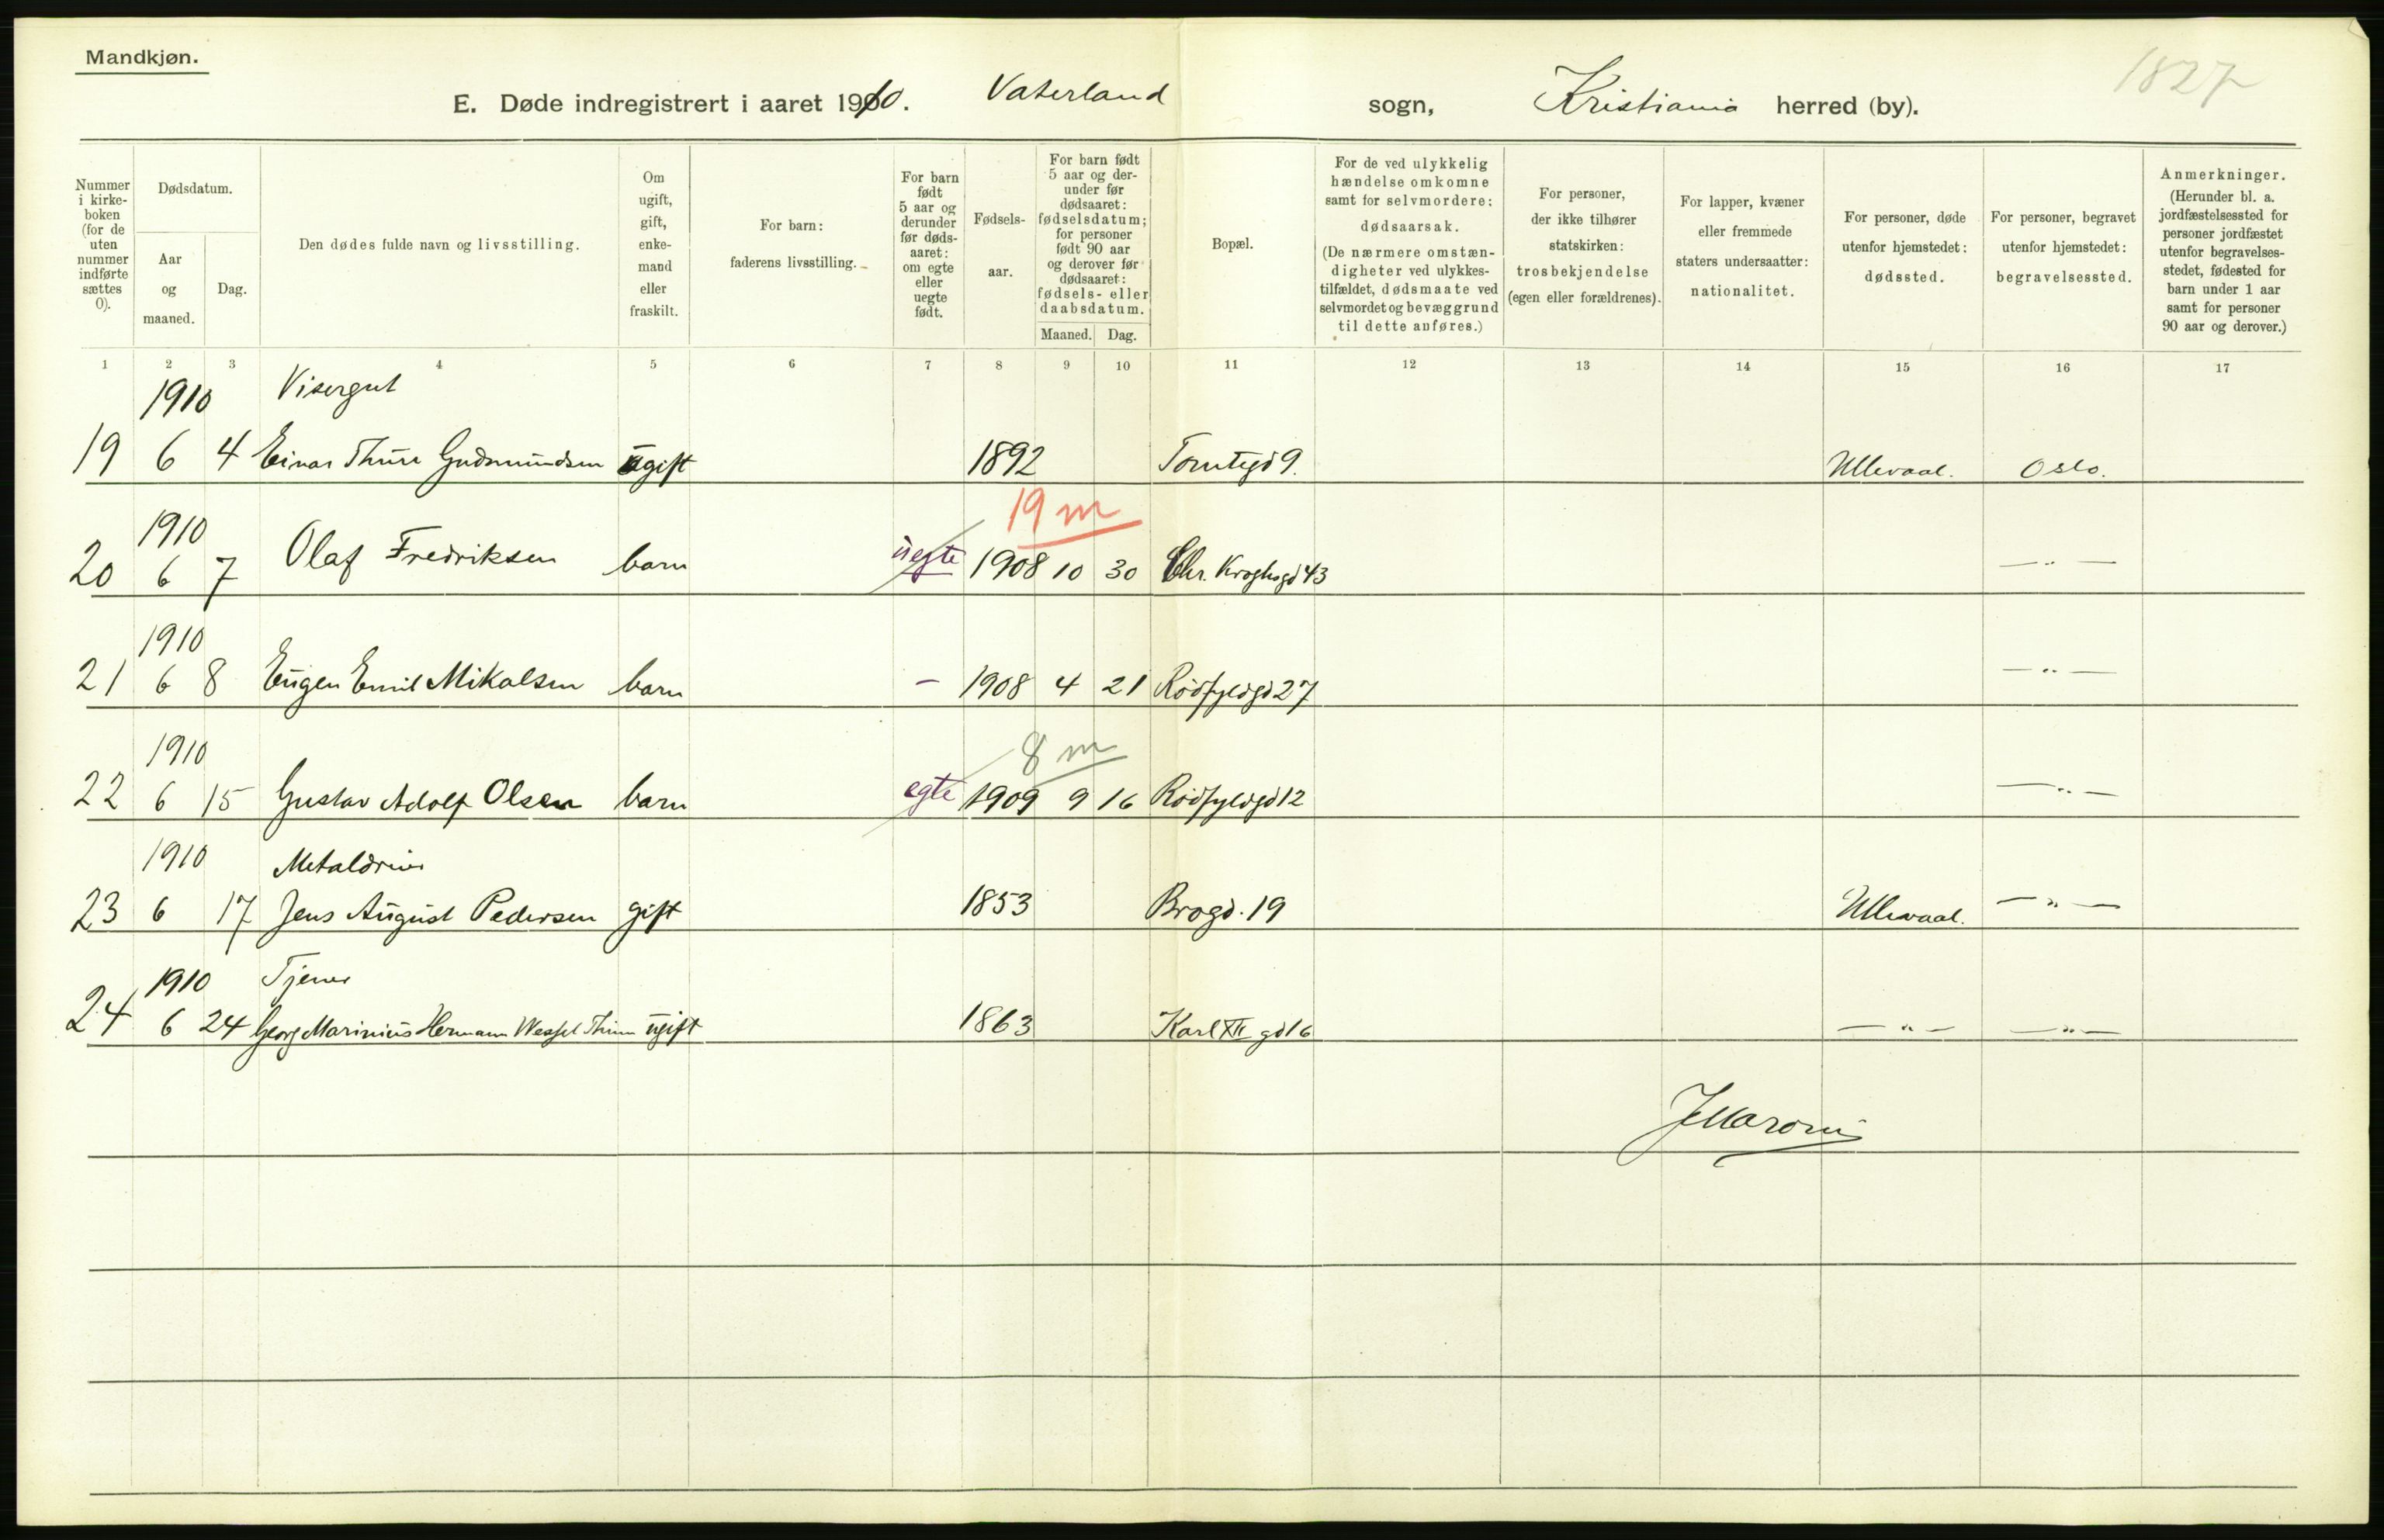 Mandkjøn.
1827
E. Døde indregistrert i aaret 1910. Vaterland sogn, Kristiania herred (by).
Nummer i kirke-boken (for de uten nummer indførte sættes 0).
Dødsdatum.
Aar og maaned.
Dag.
Den dødes fulde navn og livsstilling.
Om ugift, gift, enke-mand eller fraskilt.
For barn: faderens livsstilling.
For barn født 5 aar og derunder før døds-aaret: om egte eller uegte født.
Fødsels-aar.
For barn født 5 aar og der-under før dødsaaret: fødselsdatum; for personer født 90 aar og derover før dødsaaret: fødsels- eller daabsdatum.
Maaned. Dag.
Bopæl.
For de ved ulykkelig hændelse omkomne samt for selvmordere: dødsaarsak. (De nærmere omstæn-digheter ved ulykkes-tilfældet, dødsmaate ved selvmordet og bevæggrund til dette anføres.)
For personer, der ikke tilhører statskirken: trosbekjendelse (egen eller forældrenes).
For lapper, kvæner eller fremmede staters undersaatter: nationalitet.
For personer, døde utenfor hjemstedet: dødssted.
For personer, begravet utenfor hjemstedet: begravelsessted.
Anmerkninger. (Herunder bl. a. jordfæstelsessted for personer jordfæstet utenfor begravelses-stedet, fødested for barn under 1 aar samt for personer 90 aar og derover.)
1 2 3 4 5 6 7 8 9 10 11 12 13 14 15 16 17
1910 Visergut
19 6 4 Einar Thure Gudmundsen ugift 1892 Tomtegd 9. Ullevaal. Oslo.
19 m
1910
20 6 7 Olaf Fredriksen barn uegte 1908 10 30 Chr. Kroghsgd 43 — " —
1910
21 6 8 Eugen Emil Mikalsen barn – 1908 4 21 Rödfyldgd 27 — " —
8 m
1910
22 6 15 Gustav Adolf Olsen barn egte 1909 9 16 Rödfyldgd 12 — " —
1910 Metaldreier
23 6 17 Jens August Pedersen gift 1853 Brogd. 19 Ullevaal. — " —
1910 Tjener
24 6 24 Georg Marinius Hermann Wessel ugift 1863 Karl XII gd 16 — " — — " —